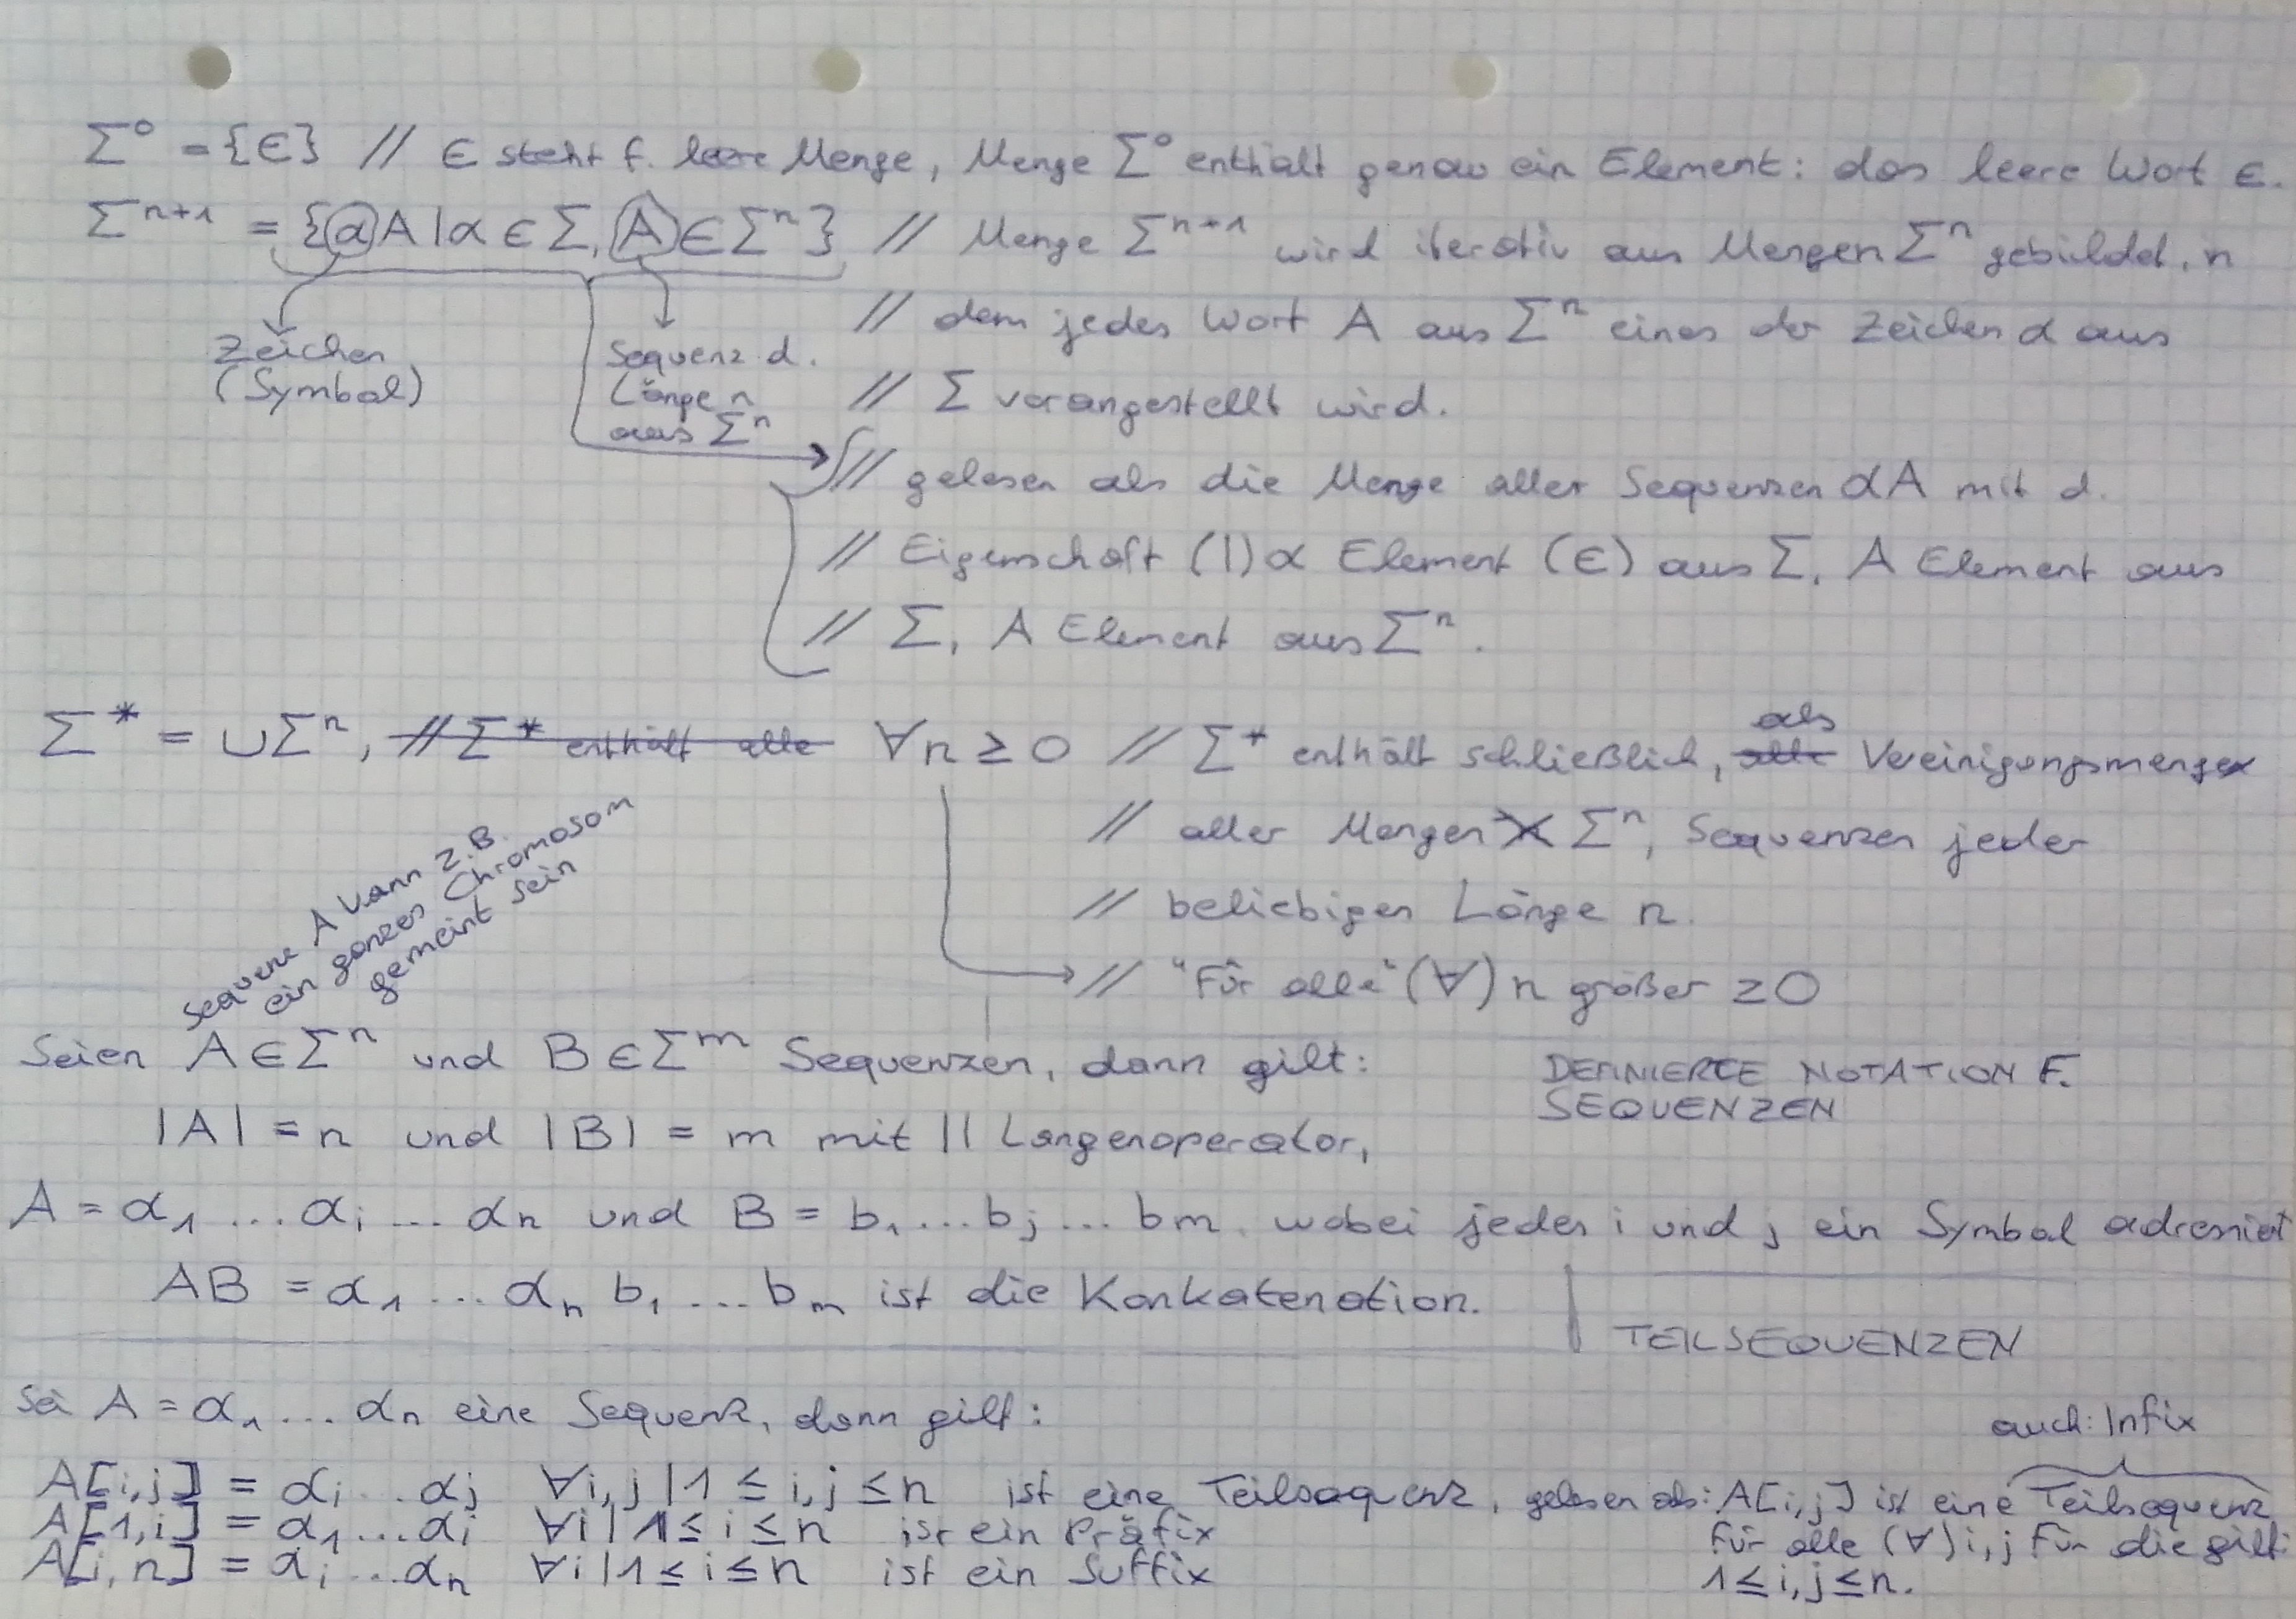 Σ⁰ = {ϵ} // ϵ steht f. leere Menge, Menge Σ⁰ enthält genau ein Element: das leere Wort ϵ.
Σⁿ⁺¹ = {αA|α ∈ Σ, A ∈ Σⁿ} // Menge Σⁿ⁺¹ wird iterativ aus Mengen Σⁿ gebildet, n
// dem jedes Wort A aus Σⁿ eines der Zeichen α aus
Zeichen
(Symbol)
Sequenz d.
Länge n
aus Σⁿ
// Σ vorangestellt wird.
// gelesen als die Menge aller Sequenzen αA mit d.
// Eigenschaft (|) α Element (∈) aus Σ, A Element aus
// Σ, A Element aus Σⁿ.
Σ* = ∪Σⁿ, // Σ* enthält alle ∀n ≥ 0 // Σ* enthält schließlich, als Vereinigungsmenge
// aller Mengen Σⁿ, Sequenzen jeder
// beliebigen Länge n.
// "Für alle" (∀) n größer ≥0
Sequenz A kann z.B.
ein ganzes Chromosom
gemeint sein
Seien A ∈ Σⁿ und B ∈ Σᵐ Sequenzen, dann gilt:
DEFINIERTE NOTATION F.
SEQUENZEN
|A| = n und |B| = m mit || Längenoperator,
A = α₁ ... αᵢ ... αₙ und B = b₁ ... bⱼ ... bₘ, wobei jedes i und j ein Symbol adressiert
AB = α₁ ... αₙ b₁ ... bₘ ist die Konkatenation.
TEILSEQUENZEN
Sei A = α₁ ... αₙ eine Sequenz, dann gilt:
auch: Infix
A[i,j] = αᵢ ... αⱼ ∀i,j |1 ≤ i,j ≤ n ist eine Teilsequenz, gelesen als: A[i,j] ist eine Teilsequenz
A[1,i] = α₁ ... αᵢ ∀i | 1 ≤ i ≤ n ist ein Präfix
für alle (∀) i,j für die gilt:
A[i,n] = αᵢ ... αₙ ∀i |1 ≤ i ≤ n ist ein Suffix
1 ≤ i,j ≤ n.